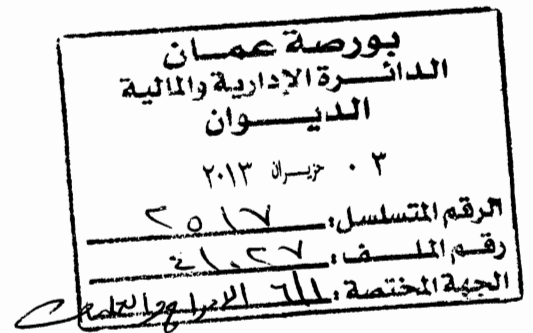 بورصة عمان
الدائرة الإدارية والمالية
الديوان
٠٣ حزيران ٢٠١٣
الرقم المتسلسل: ٢٥١٧
رقم الملف:
الجهة المختصة: